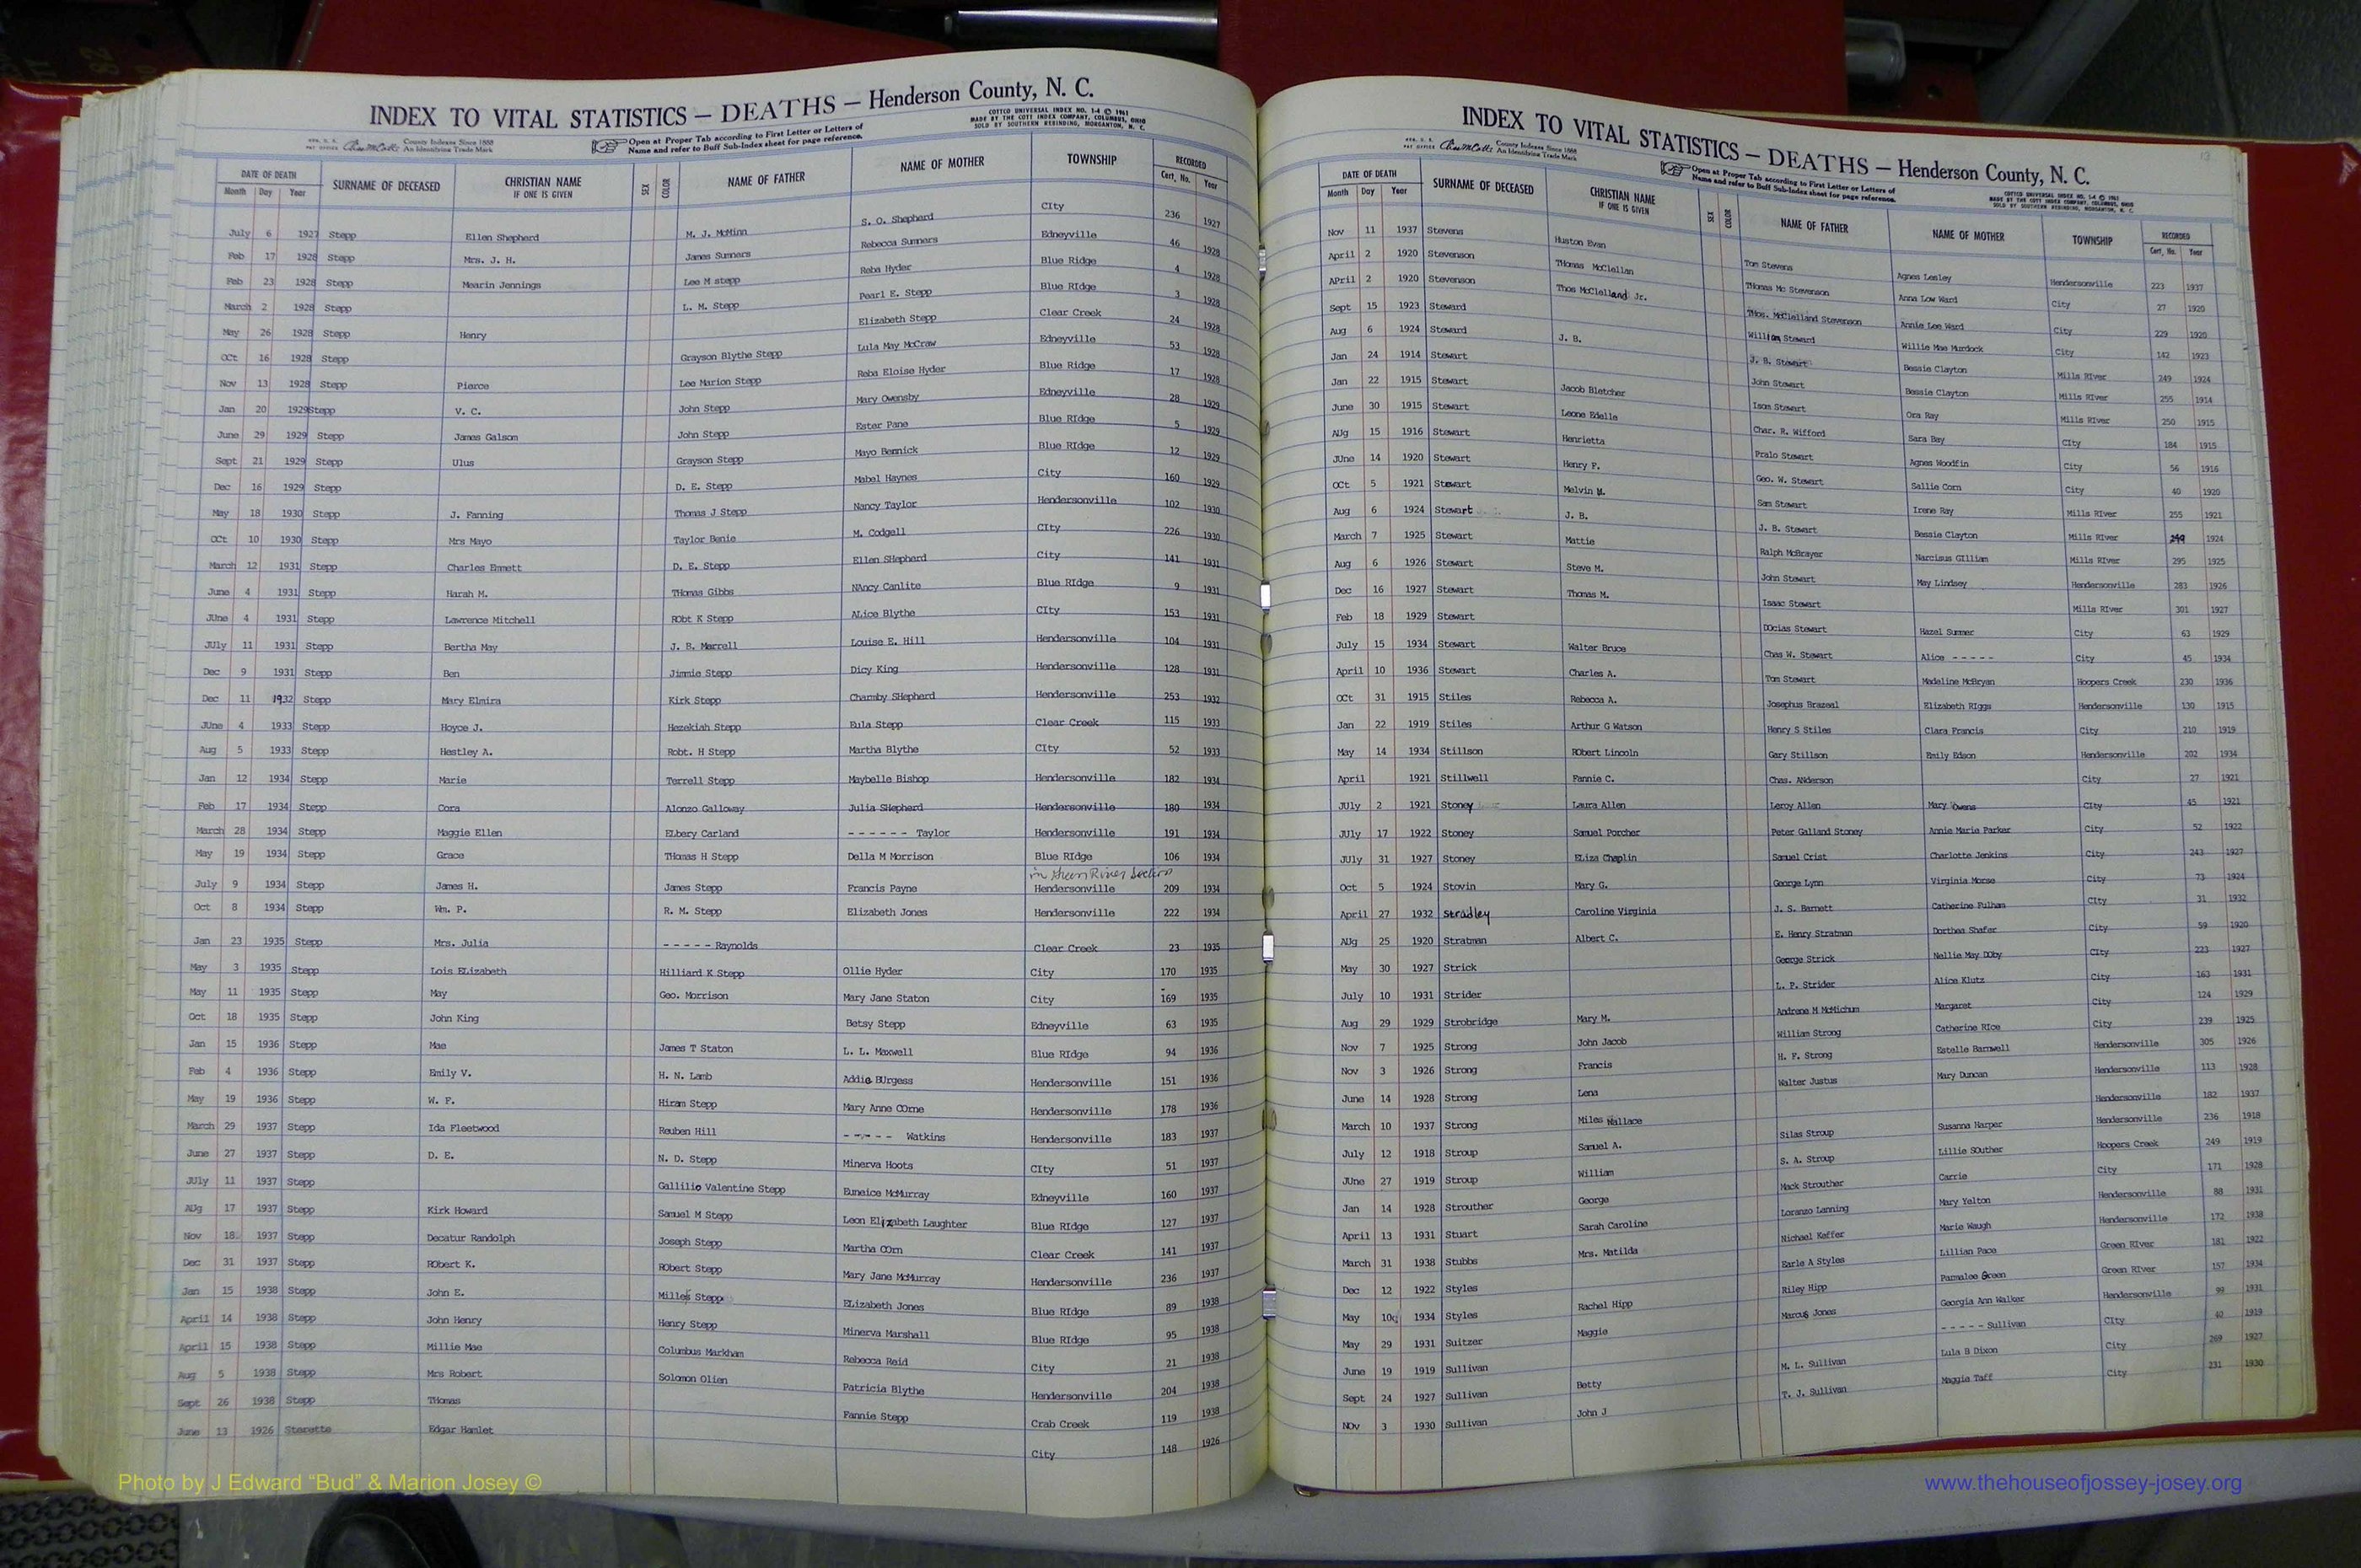 INDEX TO VITAL STATISTICS — DEATHS — Henderson County, N. C.
COTTCO UNIVERSAL INDEX NO. 1-4 © 1961
MADE BY THE COTT INDEX COMPANY, COLUMBUS, OHIO
SOLD BY SOUTHERN REBINDING, MORGANTON, N. C.
County Indexes Since 1888
An Identifying Trade Mark
Open at Proper Tab according to First Letter or Letters of
Name and refer to Buff Sub-Index sheet for page reference.
DATE OF DEATH Month Day Year SURNAME OF DECEASED CHRISTIAN NAME IF ONE IS GIVEN SEX COLOR NAME OF FATHER NAME OF MOTHER TOWNSHIP RECORDED Cert. No. Year
July 6 1927 Stepp Ellen Shepherd M. J. McMinn S. O. Shepherd CIty 236 1927
Feb 17 1928 Stepp Mrs. J. H. James Sumners Rebecca Sumners Edneyville 46 1928
Feb 23 1928 Stepp Mearin Jennings Lee M stepp Reba Hyder Blue Ridge 4 1928
March 2 1928 Stepp L. M. Stepp Pearl E. Stepp Blue RIdge 3 1928
May 26 1928 Stepp Henry Elizabeth Stepp Clear Creek 24 1928
OCt 16 1928 Stepp Grayson Blythe Stepp Lula May McCraw Edneyville 53 1928
Nov 13 1928 Stepp Pierce Lee Marion Stepp Reba Eloise Hyder Blue Ridge 17 1928
Jan 20 1929 Stepp V. C. John Stepp Mary Owensby Edneyville 28 1929
June 29 1929 Stepp James Galsom John Stepp Ester Pane Blue RIdge 5 1929
Sept 21 1929 Stepp Ulus Grayson Stepp Mayo Bennick Blue RIdge 12 1929
Dec 16 1929 Stepp D. E. Stepp Mabel Haynes City 160 1929
May 18 1930 Stepp J. Fanning Thomas J Stepp Nancy Taylor Hendersonville 102 1930
OCt 10 1930 Stepp Mrs Mayo Taylor Benie M. Codgell CIty 226 1930
March 12 1931 Stepp Charles Emmett D. E. Stepp Ellen SHepherd City 141 1931
June 4 1931 Stepp Harah M. THomas Gibbs NAncy Canlite Blue RIdge 9 1931
JUne 4 1931 Stepp Lawrence Mitchell RObt K Stepp ALice Blythe CIty 153 1931
JUly 11 1931 Stepp Bertha May J. B. Merrell Louise E. Hill Hendersonville 104 1931
Dec 9 1931 Stepp Ben Jimmie Stepp Dicy King Hendersonville 128 1931
Dec 11 1932 Stepp Mary Elmira Kirk Stepp Chamby SHepherd Hendersonville 253 1932
JUne 4 1933 Stepp Hoyce J. Hezekiah Stepp Eula Stepp Clear Creek 115 1933
Aug 5 1933 Stepp Hestley A. Robt. H Stepp Martha Blythe CIty 52 1933
Jan 12 1934 Stepp Marie Terrell Stepp Maybelle Bishop Hendersonville 182 1934
Feb 17 1934 Stepp Cora Alonzo Galloway Julia SHepherd Hendersonville 180 1934
March 28 1934 Stepp Maggie Ellen ELbery Carland - - - - - - Taylor Hendersonville 191 1934
May 19 1934 Stepp Grace THomas H Stepp Della M Morrison Blue RIdge 106 1934
in Green River Section
July 9 1934 Stepp James H. James Stepp Francis Payne Hendersonville 209 1934
Oct 8 1934 Stepp Wm. P. R. M. Stepp Elizabeth Jones Hendersonville 222 1934
Jan 23 1935 Stepp Mrs. Julia - - - - - Raynolds Clear Creek 23 1935
May 3 1935 Stepp Lois ELizabeth Hilliard K Stepp Ollie Hyder City 170 1935
May 11 1935 Stepp May Geo. Morrison Mary Jane Staton City 169 1935
Oct 18 1935 Stepp John King Betsy Stepp Edneyville 63 1935
Jan 15 1936 Stepp Mae James T Staton L. L. Maxwell Blue RIdge 94 1936
Feb 4 1936 Stepp Emily V. H. N. Lamb Addie BUrgess Hendersonville 151 1936
May 19 1936 Stepp W. F. Hiram Stepp Mary Anne COrne Hendersonville 178 1936
March 29 1937 Stepp Ida Fleetwood Reuben Hill - - - - - Watkins Hendersonville 183 1937
June 27 1937 Stepp D. E. N. D. Stepp Minerva Hoots CIty 51 1937
JUly 11 1937 Stepp Gallilio Valentine Stepp Euneice McMurray Edneyville 160 1937
AUg 17 1937 Stepp Kirk Howard Samuel M Stepp Leon Elizabeth Laughter Blue RIdge 127 1937
Nov 18 1937 Stepp Decatur Randolph Joseph Stepp Martha COrn Clear Creek 141 1937
Dec 31 1937 Stepp RObert K. RObert Stepp Mary Jane McMurray Hendersonville 236 1937
Jan 15 1938 Stepp John E. Milles Stepp ELizabeth Jones Blue RIdge 89 1938
April 14 1938 Stepp John Henry Henry Stepp Minerva Marshall Blue RIdge 95 1938
April 15 1938 Stepp Millie Mae Columbus Markham Rebecca Reid City 21 1938
Aug 5 1938 Stepp Mrs Robert Solomon Olien Patricia Blythe Hendersonville 204 1938
Sept 26 1938 Stepp THomas Fannie Stepp Crab Creek 119 1938
June 13 1926 Starette Edgar Hamlet City 148 1926
INDEX TO VITAL STATISTICS — DEATHS — Henderson County, N. C.
COTTCO UNIVERSAL INDEX NO. 1-4 © 1961
MADE BY THE COTT INDEX COMPANY, COLUMBUS, OHIO
SOLD BY SOUTHERN REBINDING, MORGANTON, N. C.
County Indexes Since 1888
An Identifying Trade Mark
Open at Proper Tab according to First Letter or Letters of
Name and refer to Buff Sub-Index sheet for page reference.
DATE OF DEATH Month Day Year SURNAME OF DECEASED CHRISTIAN NAME IF ONE IS GIVEN SEX COLOR NAME OF FATHER NAME OF MOTHER TOWNSHIP RECORDED Cert. No. Year
Nov 11 1937 Stevens Huston Evan Tom Stevens Agnes Lesley Hendersonville 223 1937
April 2 1920 Stevenson THomas McClellan THomas Mc Stevenson Anna Low Ward City 27 1920
APril 2 1920 Stevenson Thos McClelland Jr. THos. McClelland Stevenson Annie Lee Ward City 229 1920
Sept 15 1923 Steward William Steward Willie Mae Murdock City 142 1923
Aug 6 1924 Steward J. B. J. B. Stewart Bessie Clayton Mills RIver 249 1924
Jan 24 1914 Stewart John Stewart Bessie Clayton Mills RIver 255 1914
Jan 22 1915 Stewart Jacob Bletcher Isom Stewart Ora Ray Mills RIver 250 1915
June 30 1915 Stewart Leone Edelle Char. R. Wifford Sara Bay CIty 184 1915
AUg 15 1916 Stewart Henrietta Pralo Stewart Agnes Woodfin City 56 1916
JUne 14 1920 Stewart Henry F. Geo. W. Stewart Sallie Corn City 40 1920
OCt 5 1921 Stewart Melvin M. Sam Stewart Irene Ray Mills RIver 255 1921
Aug 6 1924 Stewart J. B. J. B. Stewart Bessie Clayton Mills RIver 249 1924
March 7 1925 Stewart Mattie Ralph McBrayer Narcisus GIlliam Mills RIver 295 1925
Aug 6 1926 Stewart Steve M. John Stewart May Lindsey Hendersonville 283 1926
Dec 16 1927 Stewart Thomas M. Isaac Stewart Mills RIver 301 1927
Feb 18 1929 Stewart DOcias Stewart Hazel Sumner City 63 1929
July 15 1934 Stewart Walter Bruce Chas W. Stewart Alice - - - - - City 45 1934
April 10 1936 Stewart Charles A. Tom Stewart Madeline McBryen Hoopers Creek 230 1936
OCt 31 1915 Stiles Rebecca A. Josephus Brazeal Elizabeth RIggs Hendersonville 130 1915
Jan 22 1919 Stiles Arthur G Watson Henry S Stiles Clara Francis City 210 1919
May 14 1934 Stillson RObert Lincoln Gary Stillson Emily Edson Hendersonville 202 1934
April 1921 Stillwell Fannie C. Chas. ANderson City 27 1921
JUly 2 1921 Stoney Laura Allen Leroy Allen Mary Owens CIty 45 1921
JUly 17 1922 Stoney Samuel Porcher Peter Galland Stoney Annie Marie Parker City 52 1922
JUly 31 1927 Stoney ELiza Chaplin Samuel Crist Charlotte Jenkins City 243 1927
Oct 5 1924 Stovin Mary G. George Lynn Virginia Morse City 73 1924
April 27 1932 Stradley Caroline Virginia J. S. Barnett Catherine Fulham CIty 31 1932
AUg 25 1920 Stratman Albert C. E. Henry Stratman Dorthea Shafer City 59 1920
May 30 1927 Strick George Strick Nellie May DOby CIty 223 1927
July 10 1931 Strider L. P. Strider Alice Klutz City 163 1931
Aug 29 1929 Strobridge Mary M. Andrene M McMichum Margaret City 124 1929
Nov 7 1925 Strong John Jacob William Strong Catherine RIce City 239 1925
Nov 3 1926 Strong Francis H. F. Strong Estelle Barnwell Hendersonville 305 1926
June 14 1928 Strong Lena Walter Justus Mary Duncan Hendersonville 113 1928
March 10 1937 Strong Miles Wallace Hendersonville 182 1937
July 12 1918 Stroup Samuel A. Silas Stroup Susanna Harper Hendersonville 236 1918
JUne 27 1919 Stroup William S. A. Stroup Lillie SOuther Hoopers Creek 249 1919
Jan 14 1928 Strouther George Mack Strouther Carrie City 171 1928
April 13 1931 Stuart Sarah Caroline Loranzo Lanning Mary Yelton Hendersonville 88 1931
March 31 1938 Stubbs Mrs. Matilda Nichael Keffer Marie Waugh Hendersonville 172 1938
Dec 12 1922 Styles Earle A Styles Lillian Pace Green RIver 181 1922
May 10 1934 Styles Rachel Hipp Riley Hipp Pamalee Green Green RIver 157 1934
May 29 1931 Suitzer Maggie Marcus Jones Georgia Ann Walker Hendersonville 99 1931
June 19 1919 Sullivan - - - - - Sullivan CIty 40 1919
Sept 24 1927 Sullivan Betty M. L. Sullivan Lula B Dixon City 269 1927
NOv 3 1930 Sullivan John J T. J. Sullivan Maggie Taff City 231 1930
Photo by J Edward “Bud” & Marion Josey ©
www.thehouseofjossey-josey.org